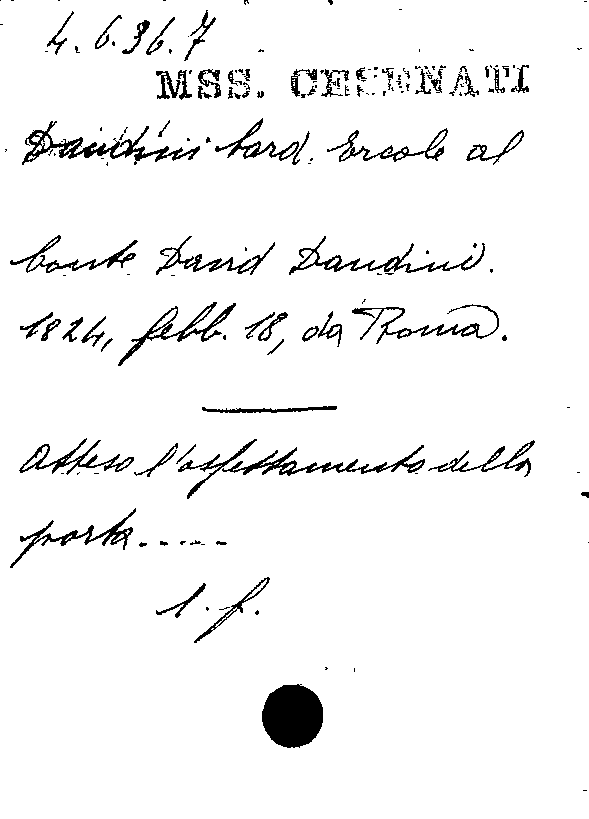 4.6.36.7
MSS. CESENATI
Dandini Card. Ercole al
Conte David Dandini.
1824, febb. 18, da Roma.
Atteso l'aspettamento della
porta.....
1. f.